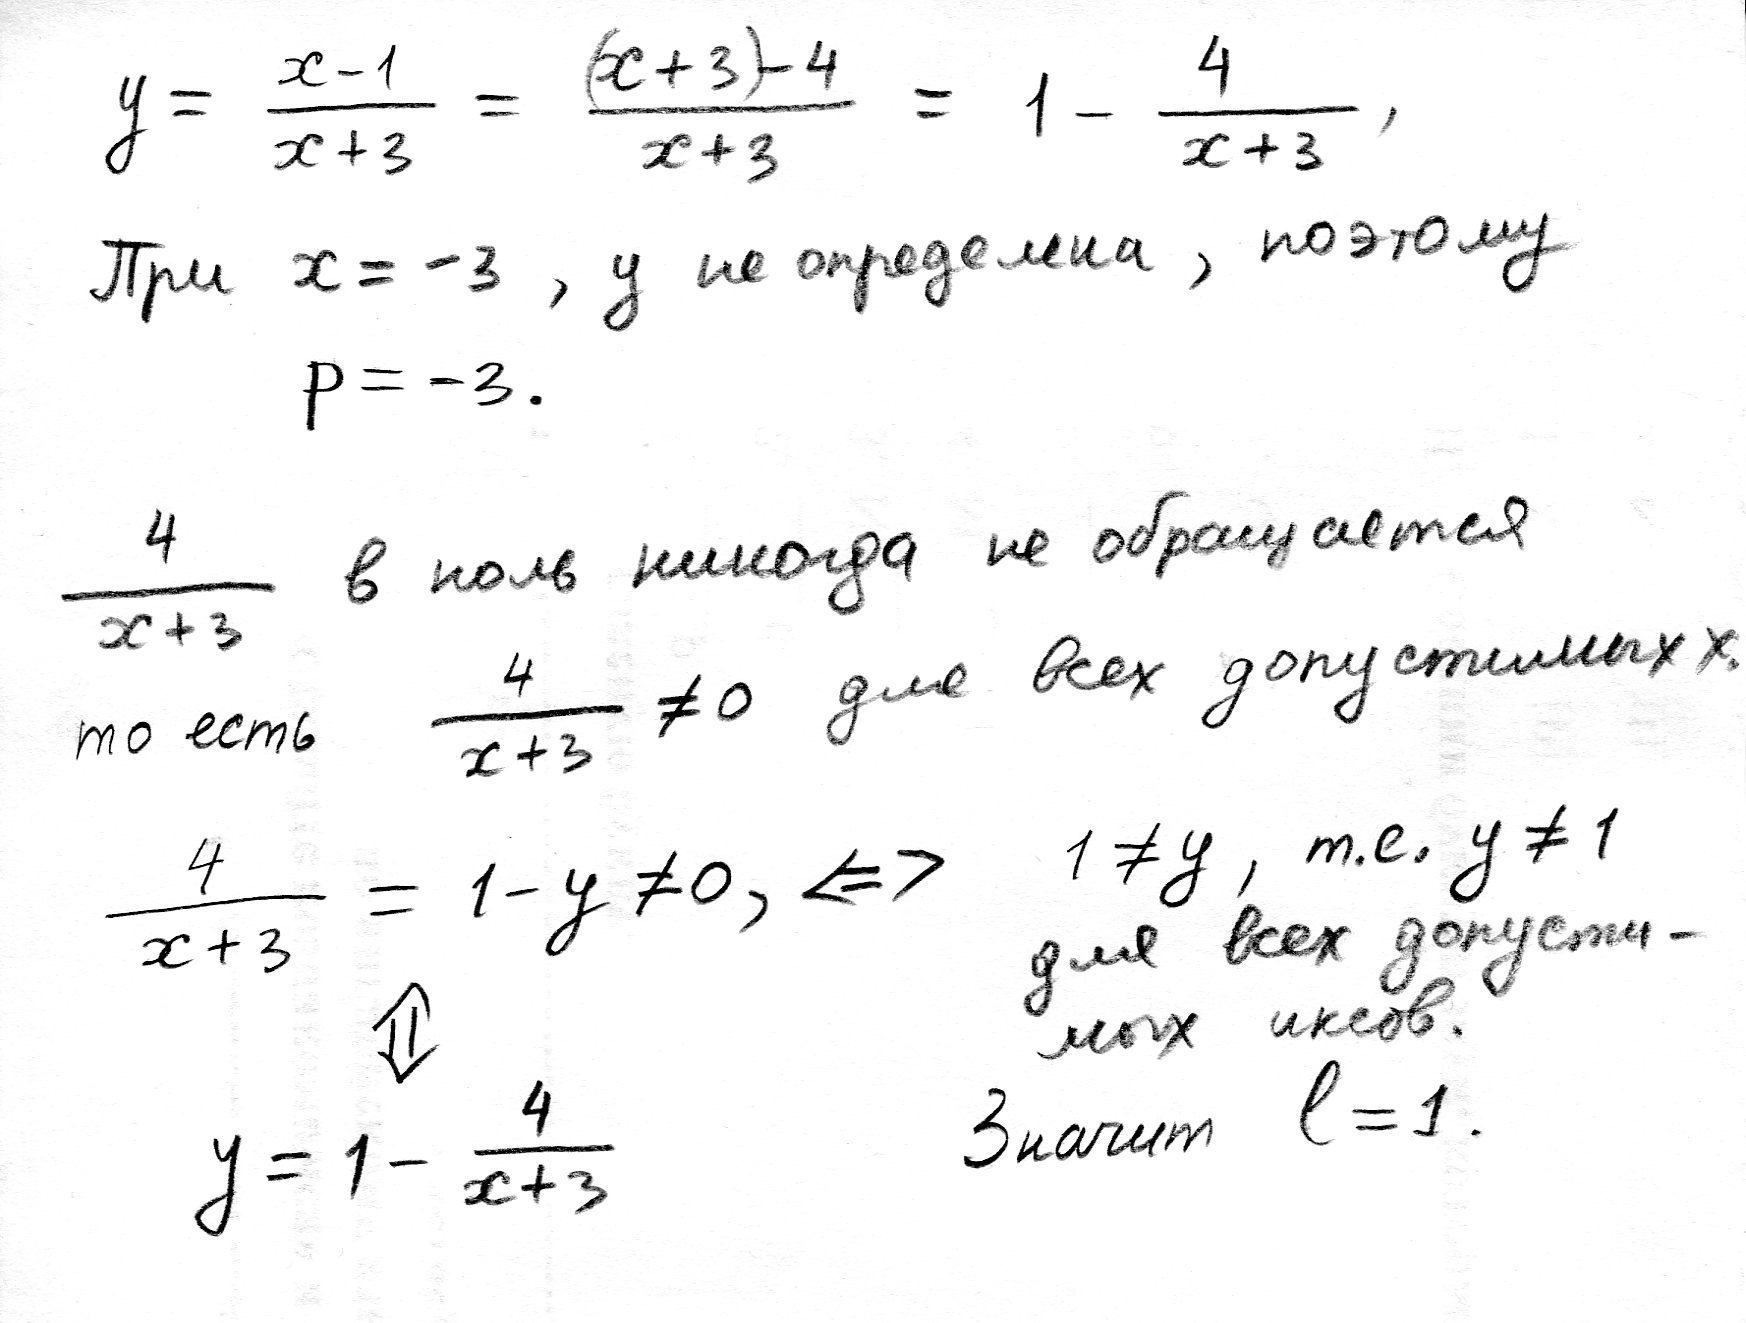 y = (x-1)/(x+3) = ((x+3)-4)/(x+3) = 1 - 4/(x+3),
При x = -3, y не определена, поэтому
p = -3.
4/(x+3) в ноль никогда не обращается
то есть 4/(x+3) ≠ 0 для всех допустимых x.
4/(x+3) = 1 - y ≠ 0, <=> 1 ≠ y, т.е. y ≠ 1
для всех допусти-
мых иксов.
⇕
y = 1 - 4/(x+3)
Значит l = 1.